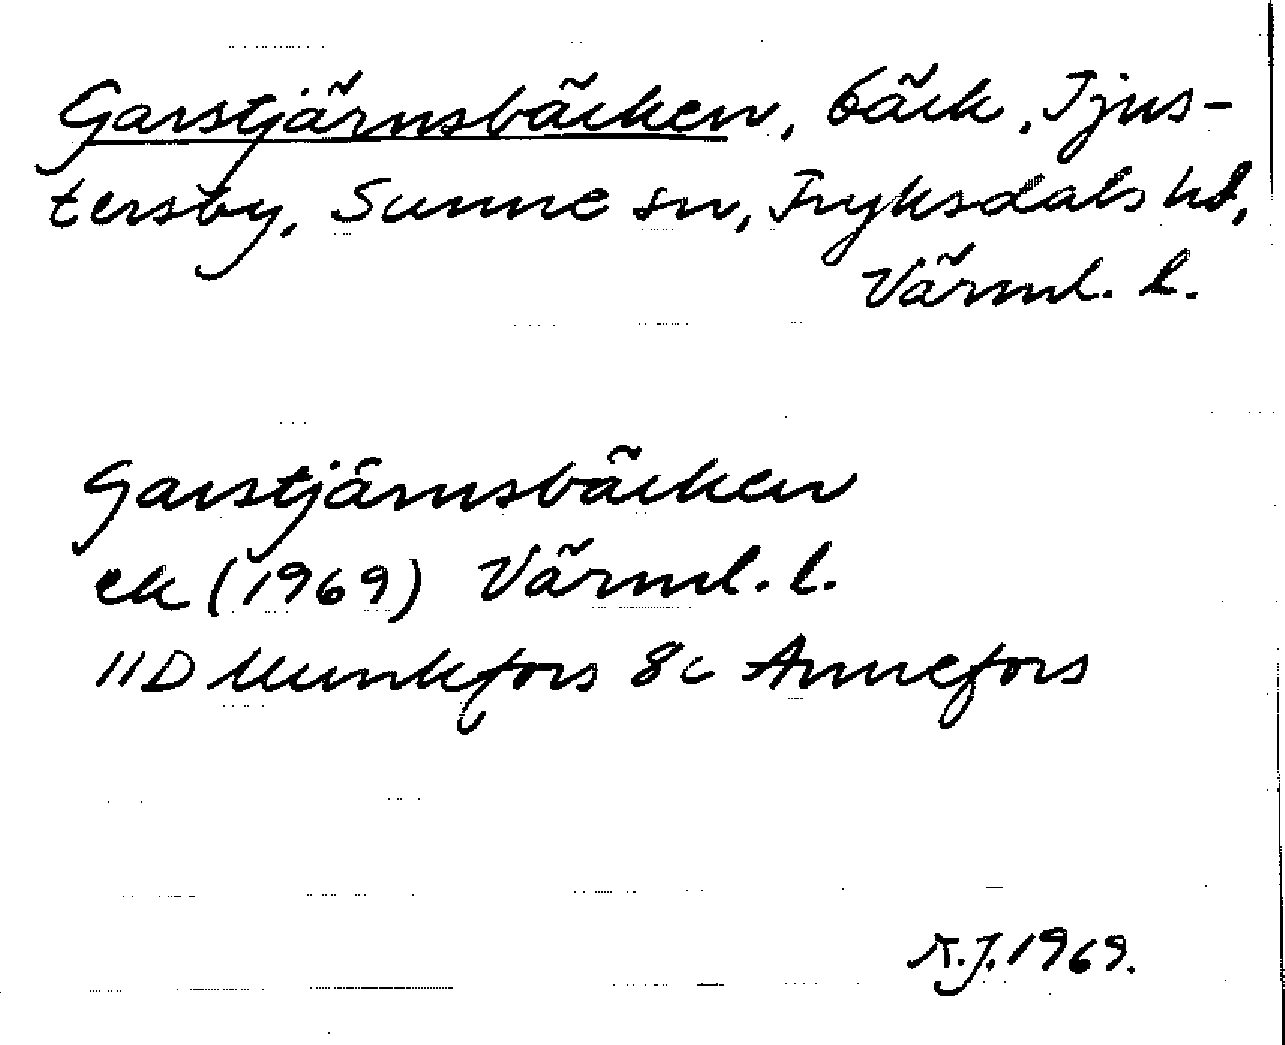 Garstjärnsbäcken, bäck, Tjus-
tersby, Sunne sn, Fryksdals hd,
Värml. l.
Garstjärnsbäcken
ek (1969) Värml. l.
11D Munkfors 8c Annefors
R.J. 1969.